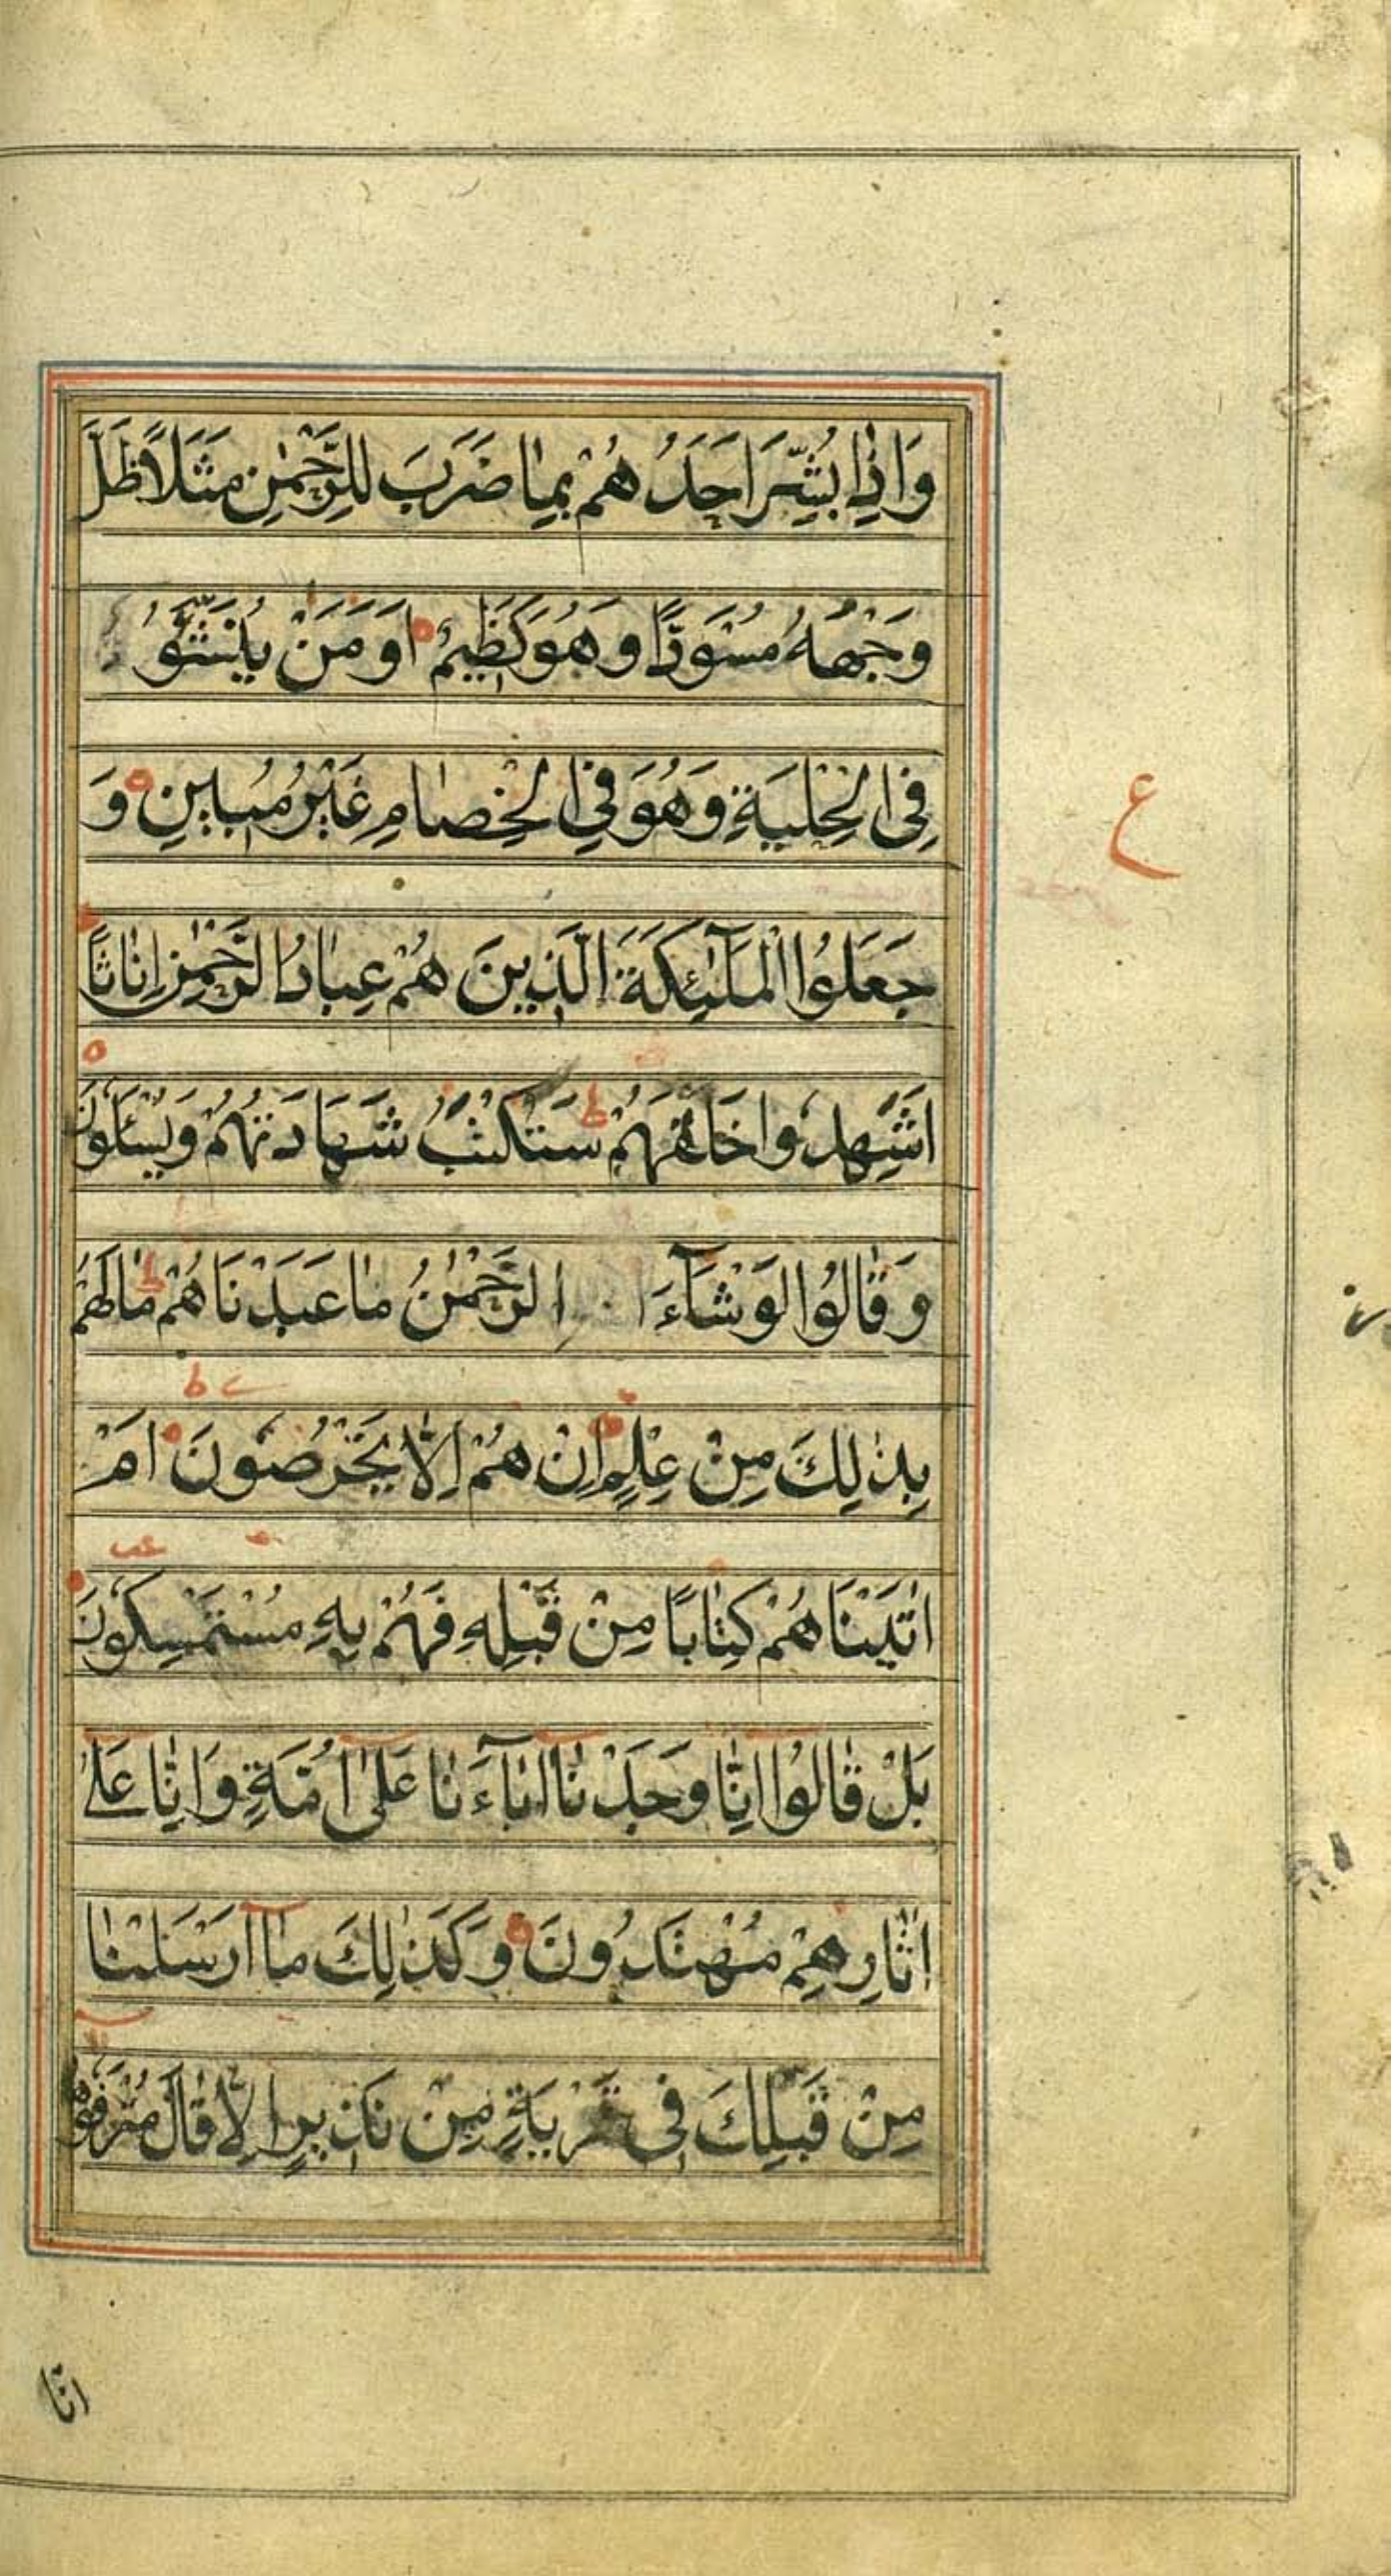 وَاِذٰا بُشِّرَ اَحَدُ هُمْ بِمٰا ضَرَبَ لِلرَّحْمٰنِ مَثَلاً ظَلَّ
وَجْهُهُ مُسْوَدًّا وَ هُوَ كَظِيمٌ اَوَ مَنْ يُنَشَّؤُ
فِى الْحِلْيَةِ وَ هُوَ فِى الْخِصٰامِ غَيْرُ مُبِينٍ وَ
جَعَلُوا الْمَلٰٓئِكَةَ الَّذِينَ هُمْ عِبٰادُ الرَّحْمٰنِ اِنٰاثًا
اَشَهِدُوا خَلْقَهُمْ سَتُكْتَبُ شَهَادَتُهُمْ وَ يُسْئَلُونَ
وَ قٰالُوا لَوْ شَآءَ الرَّحْمٰنُ مٰا عَبَدْنَا هُمْ مٰا لَهُمْ
بِذٰلِكَ مِنْ عِلْمٍ اِنْ هُمْ اِلّٰا يَخْرُصُونَ اَمْ
اٰتَيْنَا هُمْ كِتٰابًا مِنْ قَبْلِهِ فَهُمْ بِهِ مُسْتَمْسِكُونَ
بَلْ قٰالُوا اِنّٰا وَجَدْنٰا اٰبٰآءَنٰا عَلٰى اُمَّةٍ وَ اِنّٰا عَلٰى
اٰثٰارِهِمْ مُهْتَدُونَ وَ كَذٰلِكَ مٰا اَرْسَلْنٰا
مِنْ قَبْلِكَ فِى قَرْيَةٍ مِنْ نَذِيرٍ اِلّٰا قٰالَ مُتْرَفُوهٰا
ع
انّا